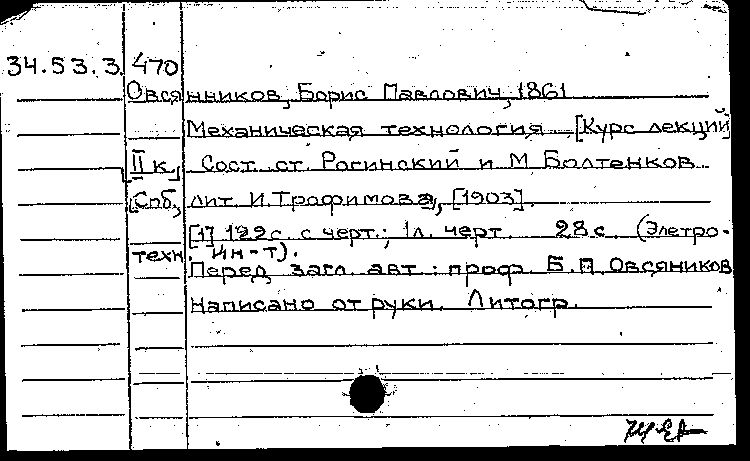 34.53.3. 470
Овсянников, Борис Павлович, 1861
Механическая технология [Курс лекций]
II к. Сост. ст. Рогинский и М. Болтенков.
[Спб., лит. И. Трофимова, [1903].
[1], 122 с. с черт.; 1 л. черт. 28 с. (Элетро-
техн. ин-т).
Перед загл. авт.: проф. Б. П. Овсяников
Написано от руки. Литогр.